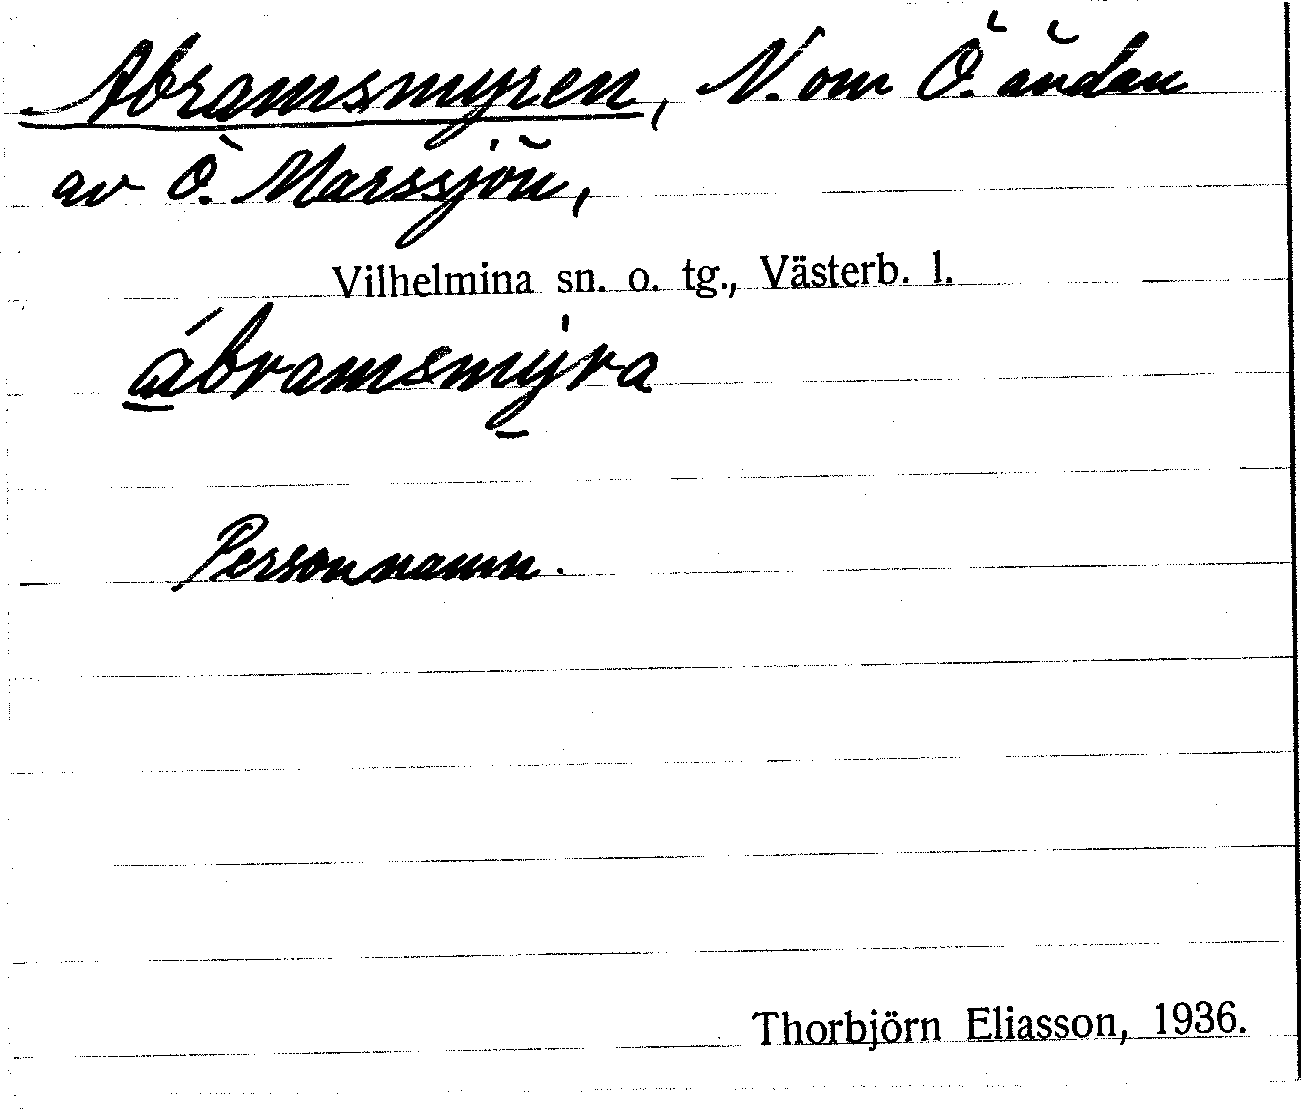 Abramsmyren, N. om Ö. ändan
av Ö. Marssjön,
Vilhelmina sn. o. tg., Västerb. l.
ábramsmyra
Personnamn.
Thorbjörn Eliasson, 1936.